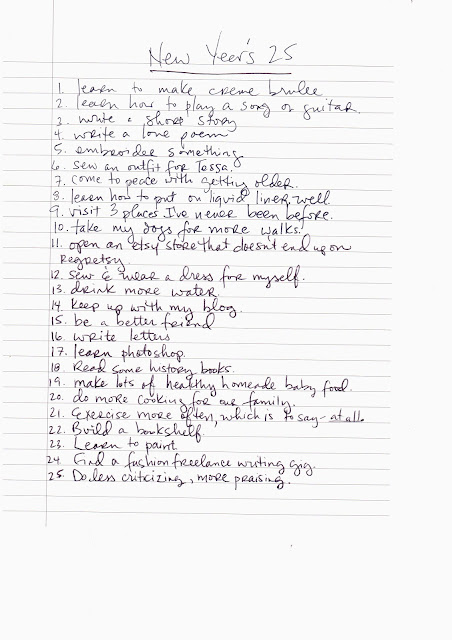 New Year's 25
1. learn to make creme brulee
2. learn how to play a song on guitar.
3. write a short story
4. write a love poem
5. embroider something
6. sew an outfit for Tessa.
7. come to peace with getting older.
8. learn how to put on liquid liner well
9. visit 3 places I've never been before.
10. take my dogs for more walks.
11. open an etsy store that doesn't end up on
Regretsy.
12. sew & wear a dress for myself.
13. drink more water.
14. keep up with my blog.
15. be a better friend
16. write letters
17. learn photoshop.
18. Read some history books.
19. make lots of healthy homemade baby food.
20. do more cooking for our family.
21. Exercise more often, which is to say - at all.
22. Build a bookshelf
23. Learn to paint
24. Find a fashion freelance writing gig.
25. Do less criticizing, more praising.